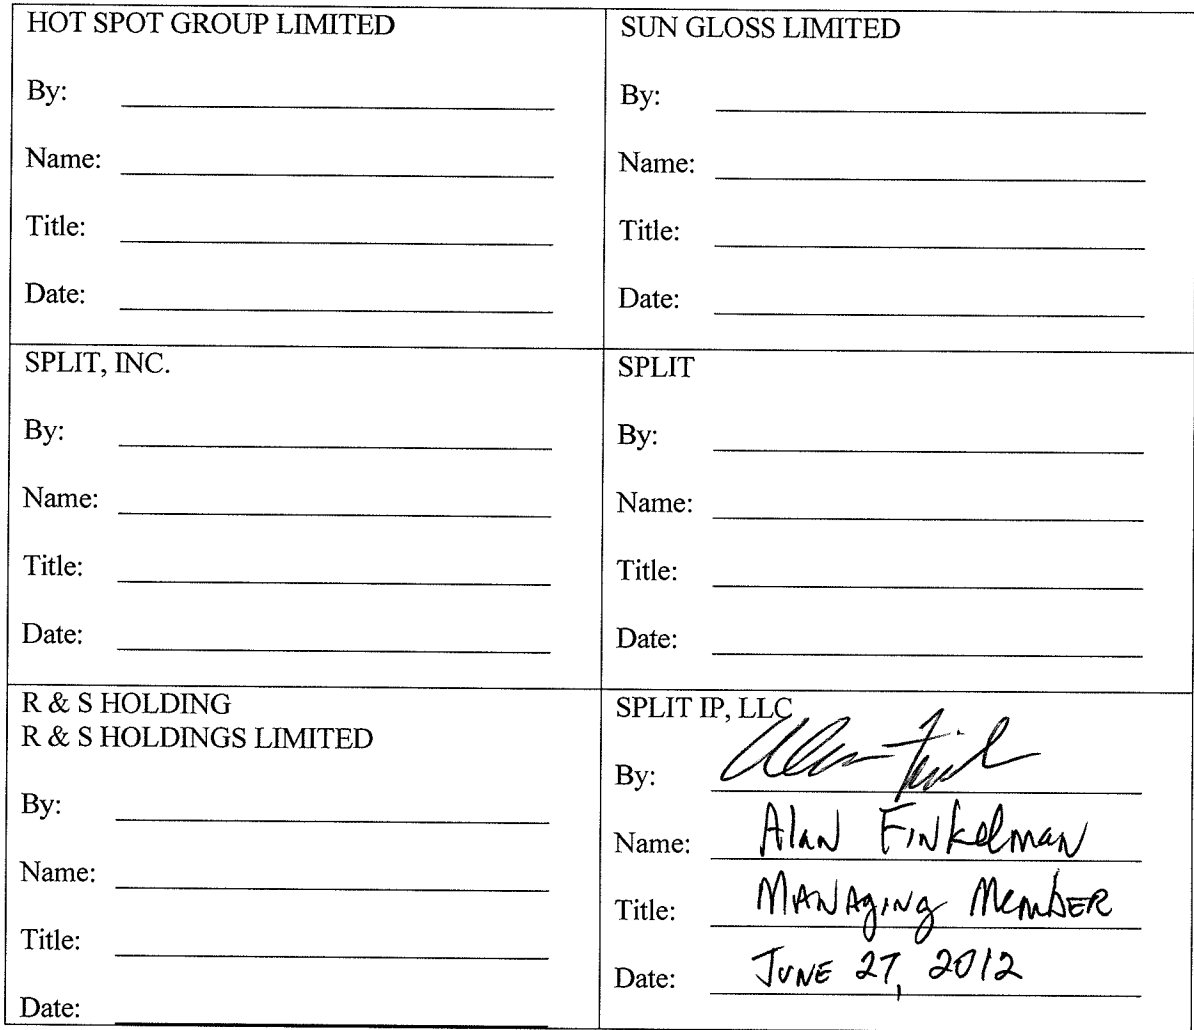 HOT SPOT GROUP LIMITED
By:
Name:
Title:
Date:
SUN GLOSS LIMITED
By:
Name:
Title:
Date:
SPLIT, INC.
By:
Name:
Title:
Date:
SPLIT
By:
Name:
Title:
Date:
R & S HOLDING
R & S HOLDINGS LIMITED
By:
Name:
Title:
Date:
SPLIT IP, LLC
By:
Name: Alan Finkelman
Title: Managing Member
Date: June 27, 2012